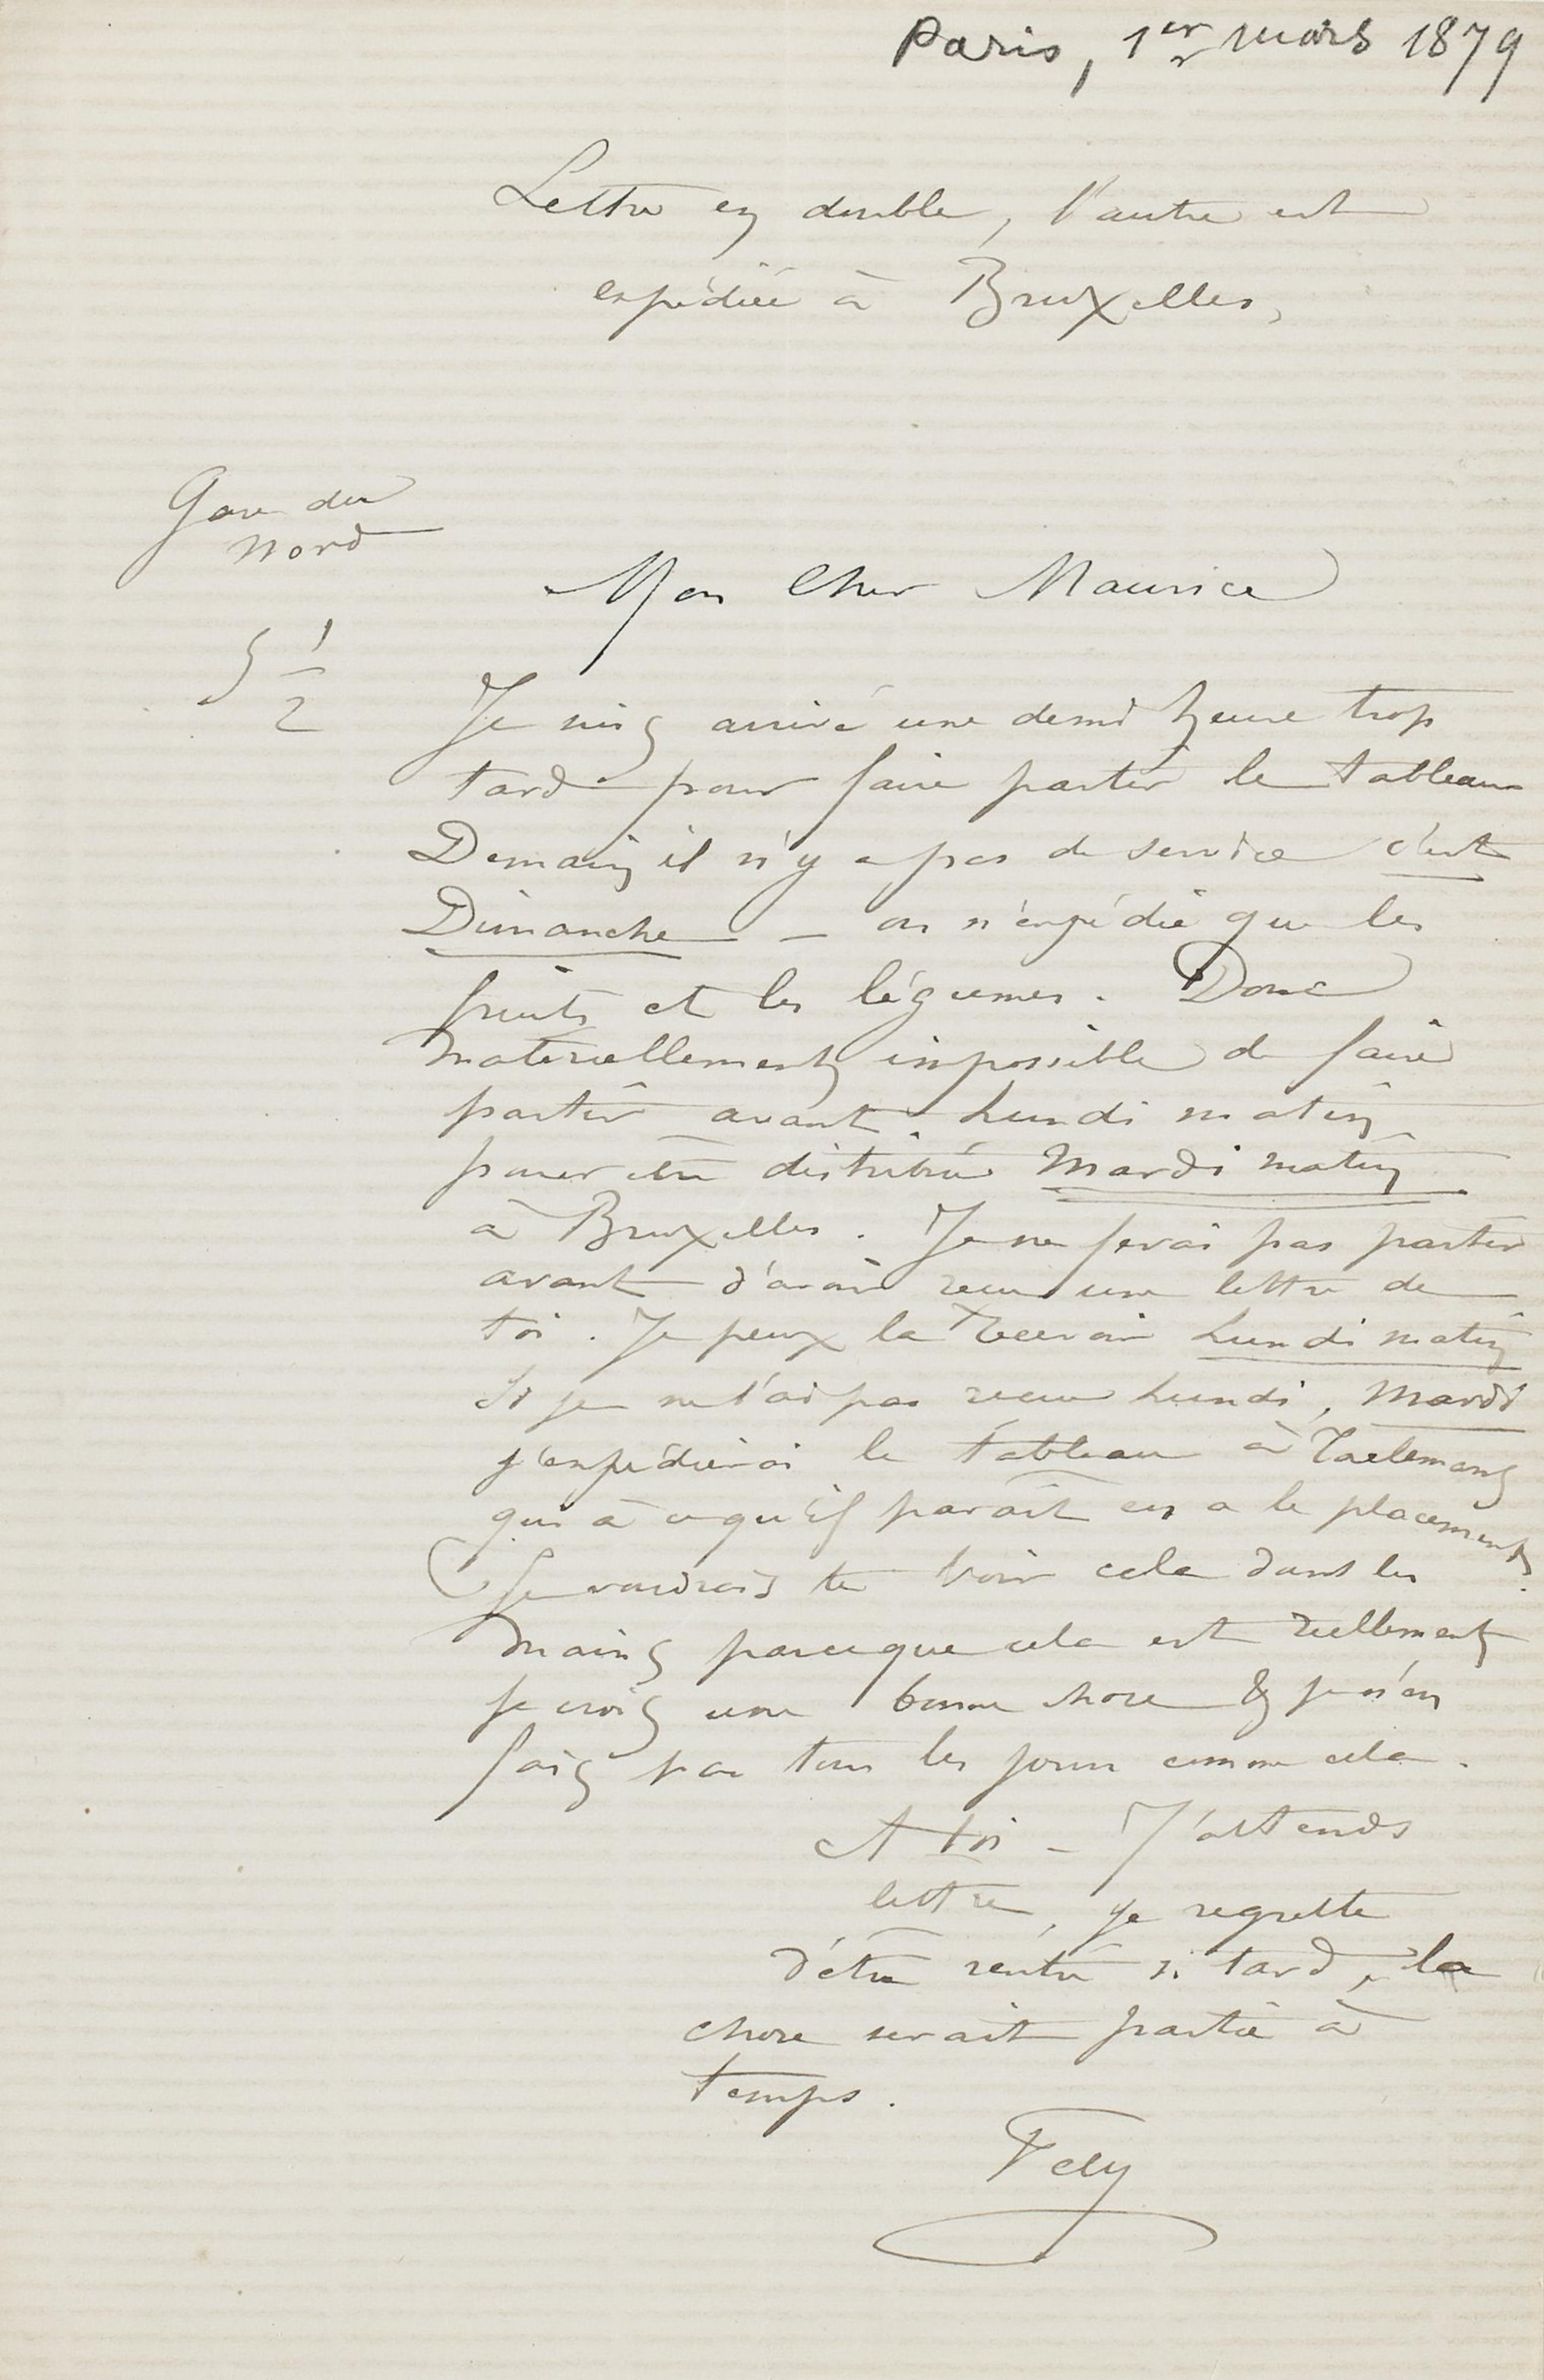 Paris, 1er mars 1879
Lettre en double, l'autre est
expédiée à Bruxelles,
Gare du
Nord
5 1/2
Mon Cher Maurice
Je suis arrivé une demi heure trop
tard pour faire partir le tableau
Demain il n'y a pas de service c'est
Dimanche – on n'expédie que les
fruits et les légumes. Donc
materiellement impossible de faire
partir avant Lundi matin
pour être distribué Mardi matin
à Bruxelles. Je ne ferai pas partir
avant d'avoir recu une lettre de
toi. Je peux la recevoir Lundi matin
Si je ne l'ai pas recue Lundi, Mardi
j'expédierai le tableau à Taelemans
qui à ce qu'il paraît en a le placement.
Je voudrais te voir cela dans les
mains parceque cela est réellement
je crois une bonne chose & je n'en
fais pas tous les jours comme cela.
A toi – J'attends
lettre, je regrette
d'être rentré si tard, la
chose serait partie à
temps.
Fély